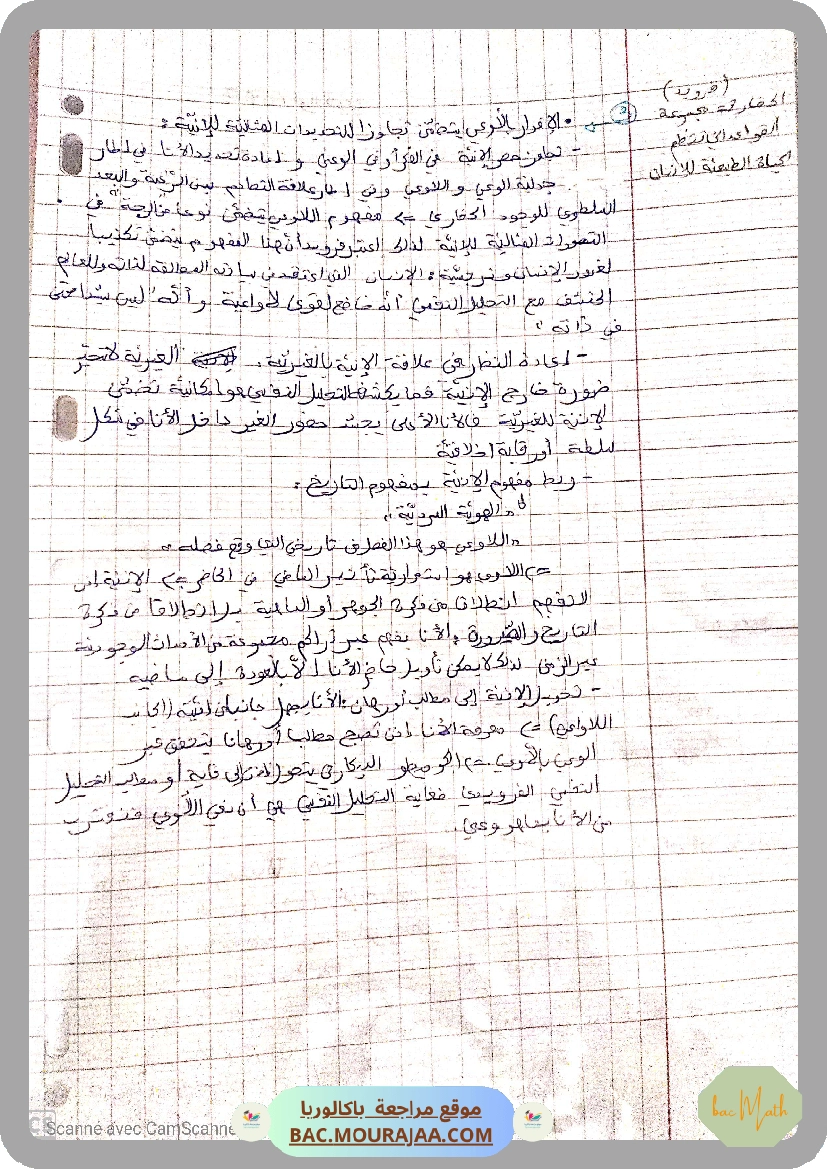 (فرويد)
الحضارة مجموعة
القواعد التي تنظم
الحياة الطبيعية للإنسان
2
• الإقرار باللاوعي يتضمّن تجاوزا للتحديدات المثاليّة للإنيّة :
- تجاوز حصر الإنيّة في الفكر أو في الوعي و إعادة تحديد الأنا في إطار
جدلية الوعي و اللاوعي وفي إطار علاقة التصادم بين الرّغبة والبعد
السلطوي للوجود الحضاري => مفهوم اللاوعي يتضمّن نوعا من الجرحة في
التصورات المثاليّة للإنيّة لذلك اعتبر فرويد أنّ هذا المفهوم يتضمّن تكذيبا
لغرور الإنسان و نرجسيّته : الإنسان الذي اعتقد في سيادته المطلقة لذاته وللعالم
اكتشف مع التحليل النفسي أنّه خاضع لقوى لاواعية و أنّه "ليس سيّدا حتّى
في ذاته"
- إعادة النظر في علاقة الإنيّة بالغيريّة. الغيريّة لا تتحيّز
ضرورة خارج الإنيّة فما يكشفه التحليل النفسي هو إمكانيّة تضمّن
الإنيّة للغيريّة فالأنا الأعلى يجسّد حضور الغير داخل الأنا في شكل
سلطة أو رقابة أخلاقيّة
- ربط مفهوم الإنيّة بمفهوم التاريخ :
"الهويّة السرديّة"
"اللاوعي هو هذا الفصل من تاريخي الذي وقع فصله"
=> اللاوعي هو استمراريّة تأثير الماضي في الحاضر => الإنيّة إذن
لا تفهم انطلاقا من فكرة الجوهر أو الماهية بل انطلاقا من فكرة
التاريخ والصّيرورة ، الأنا يفهم عبر تراكم مجموعة من الأحداث الوجودية
عبر الزمن لذلك لا يمكن تأويل حاضر الأنا إلاّ بالعودة إلى ماضيه
- تحويل الإنيّة إلى مطلب أو رهان : الأنا يجهل جانبا من إنيّته (الجانب
اللاواعي) => معرفة الأنا إذن تصبح مطلبا أو رهانا يتحقق عبر
الوعي باللاوعي => الكوجيطو الديكارتي يتحوّل إذن إلى غاية أو مطلب التحليل
النفسي الفرويدي فغاية التحليل النفسي هي أن نعي اللاوعي فنقترب
من الأنا بما هو وعي.
Scanné avec CamScanne
موقع مراجعة باكالوريا
BAC.MOURAJAA.COM
bac Math